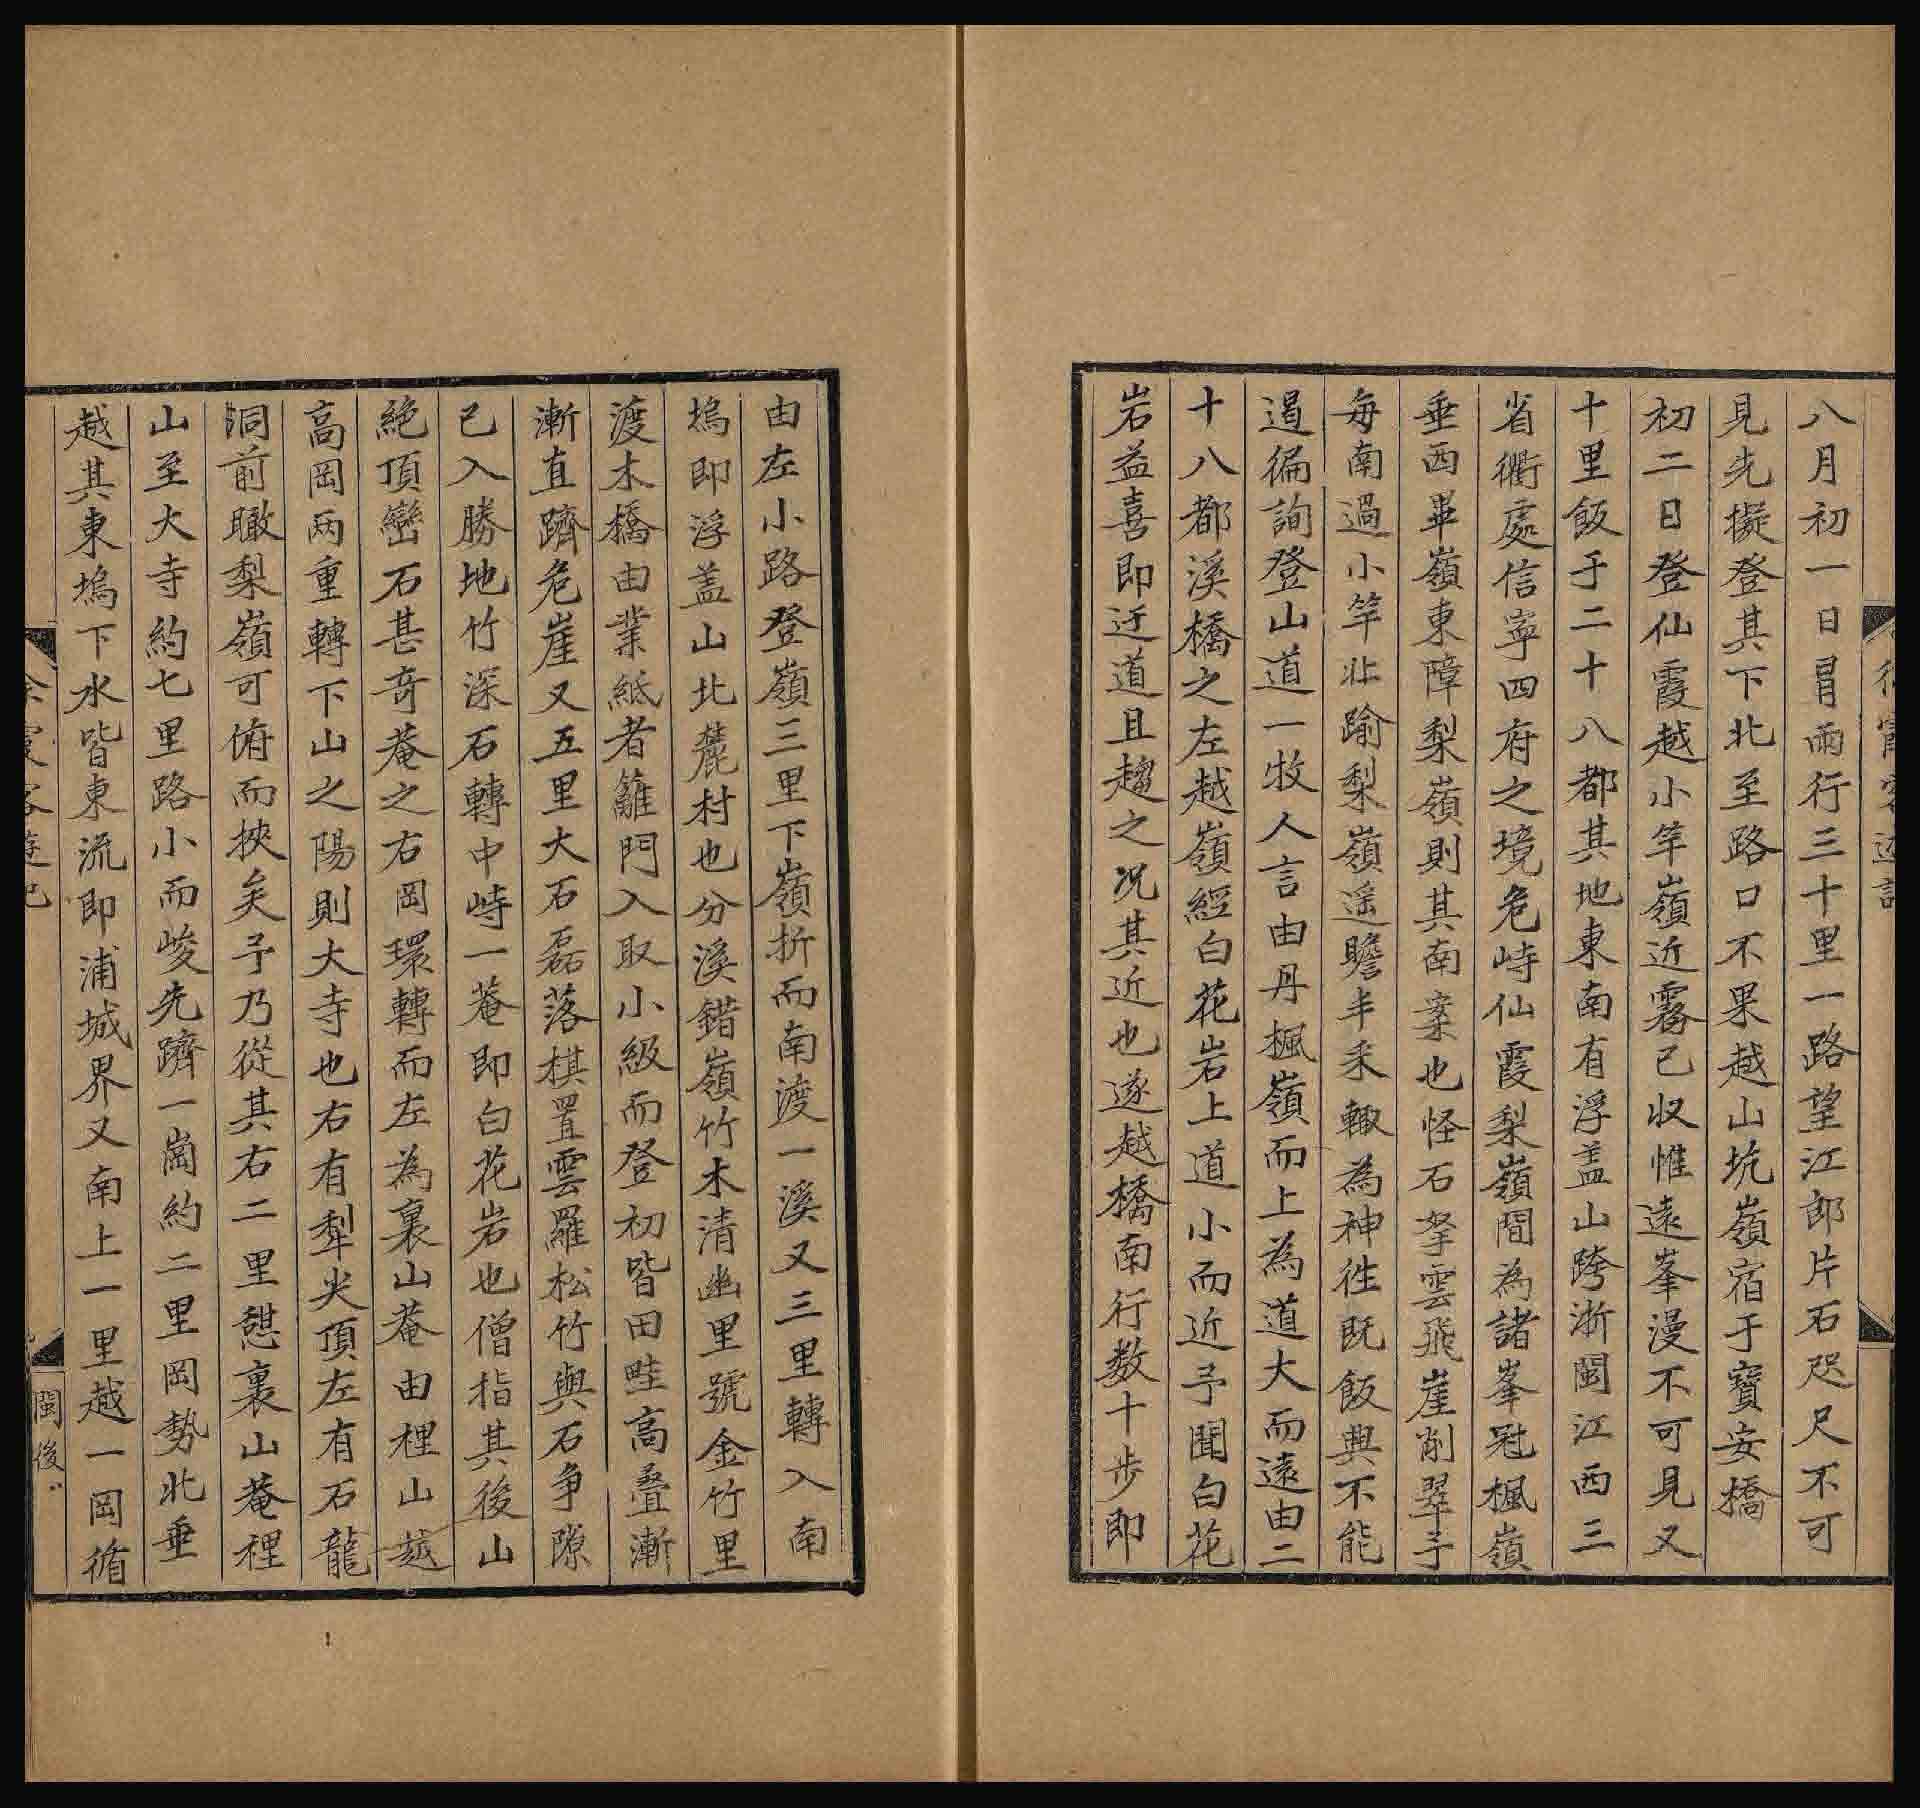 八月初一日冒雨行三十里一路望江郎片石咫尺不可
見先擬登其下北至路口不果越山坑嶺宿于寶安橋
初二日登仙霞越小竿嶺近霧已収惟遠峯漫不可見又
十里飯于二十八都其地東南有浮盖山跨浙閩江西三
省衢處信寧四府之境危峙仙霞梨嶺間為諸峯冠楓嶺
垂西畢嶺東障梨嶺則其南案也怪石拏雲飛崖削翠予
每南過小竿北踰梨嶺遥瞻丰采輙為神徃既飯興不能
遏徧詢登山道一牧人言由丹楓嶺而上為道大而遠由二
十八都溪橋之左越嶺經白花岩上道小而近予聞白花
岩益喜即迂道且趨之况其近也遂越橋南行数十步即
由左小路登嶺三里下嶺折而南渡一溪又三里轉入南
塢即浮盖山北麓村也分溪錯嶺竹木清幽里號金竹里
渡木橋由業紙者籬門入取小級而登初皆田畦高叠漸
漸直躋危崖又五里大石磊落棋置雲羅松竹與石争隙
已入勝地竹深石轉中峙一菴即白花岩也僧指其後山
絶頂巒石甚奇菴之右岡環轉而左為裏山菴由裡山越
高岡两重轉下山之陽則大寺也右有犁尖頂左有石龍
洞前瞰梨嶺可俯而挾矣予乃從其右二里憇裏山菴裡
山至大寺約七里路小而峻先躋一崗約二里岡勢北垂
越其東塢下水皆東流即浦城界又南上一里越一岡循
徐霞客遊記
閩後